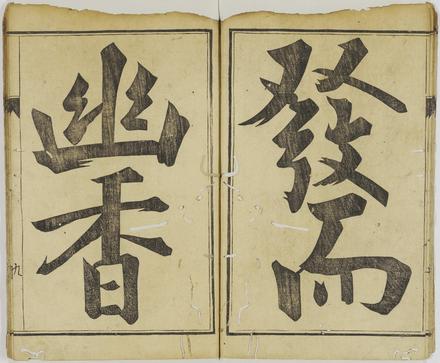 發而
幽香